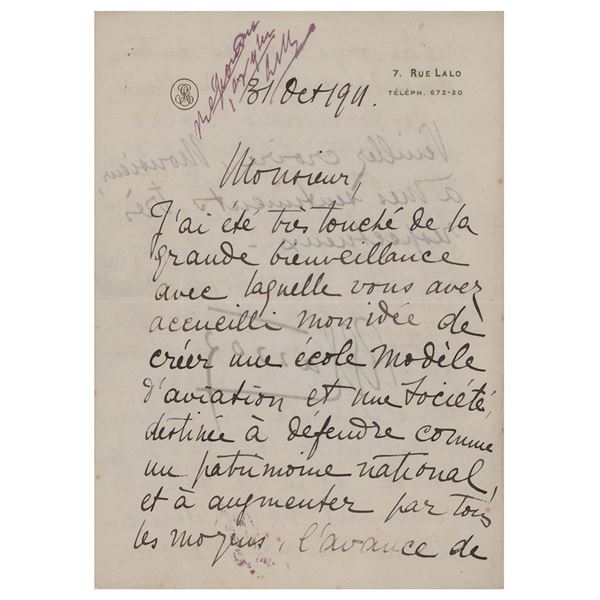 7. RUE LALO
TÉLÉPH. 672-30
31 Oct 1911.
Monsieur,
J'ai été très touché de la
grande bienveillance
avec laquelle vous avez
accueilli mon idée de
créer une école modèle
d'aviation et une Société,
destinée à défendre comme
un patrimoine national,
et à augmenter par tous
les moyens, l'avance de